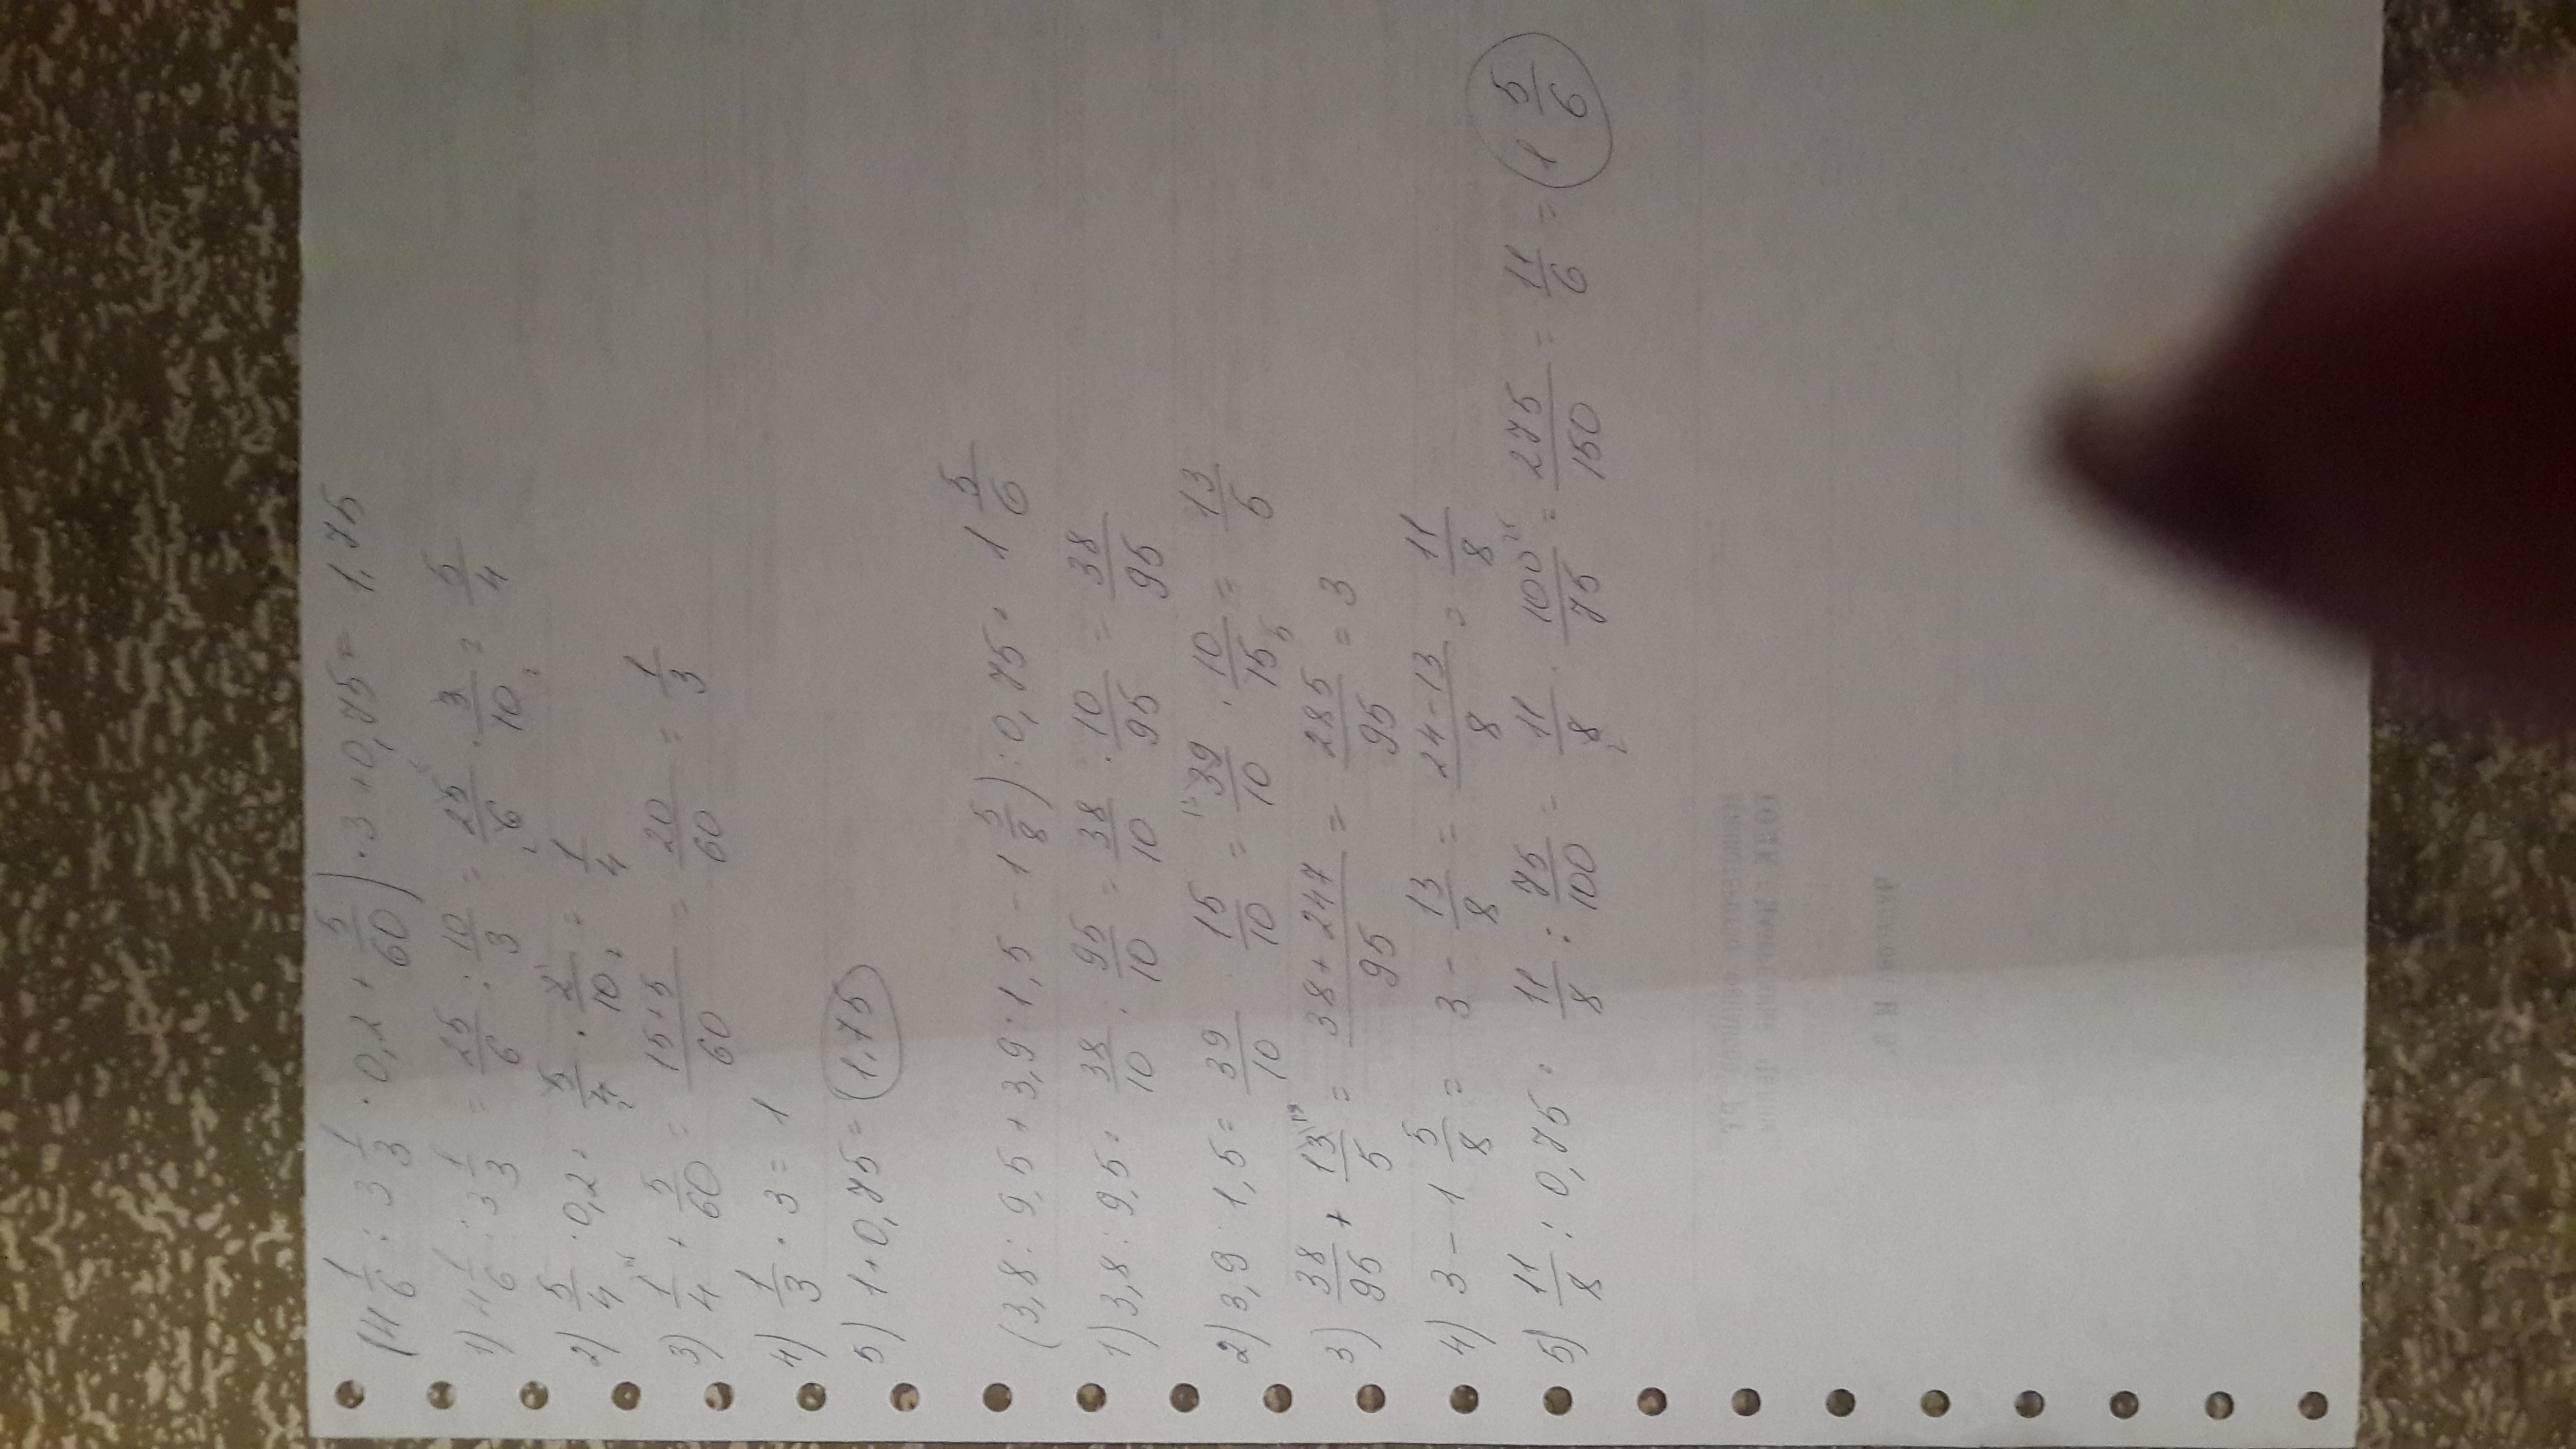 (4 1/6 : 3 1/3 · 0,2 + 5/60) · 3 + 0,75 = 1,75
1) 4 1/6 : 3 1/3 = 25/6 : 10/3 = 25/6 · 3/10 = 5/4
2) 5/4 · 0,2 = 5/4 · 2/10 = 1/4
3) 1/4 + 5/60 = 15+5/60 = 20/60 = 1/3
4) 1/3 · 3 = 1
5) 1 + 0,75 = 1,75
(3,8 : 9,5 + 3,9 : 1,5 - 1 5/8) : 0,75 = 1 5/6
1) 3,8 : 9,5 = 38/10 : 95/10 = 38/10 · 10/95 = 38/95
2) 3,9 : 1,5 = 39/10 : 15/10 = 39/10 · 10/15 = 13/5
3) 38/95 + 13/5 = 38+247/95 = 285/95 = 3
4) 3 - 1 5/8 = 3 - 13/8 = 24-13/8 = 11/8
5) 11/8 : 0,75 = 11/8 : 75/100 = 11/8 · 100/75 = 275/150 = 11/6 = 1 5/6